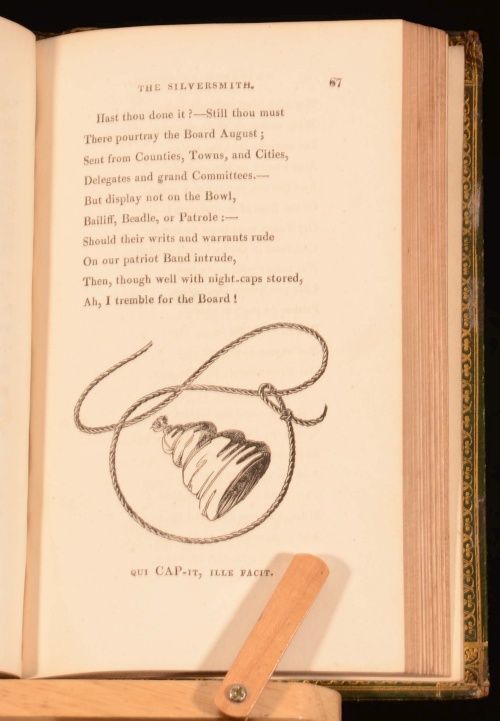 THE SILVERSMITH. 67
Hast thou done it ?—Still thou must
There pourtray the Board August ;
Sent from Counties, Towns, and Cities,
Delegates and grand Committees.—
But display not on the Bowl,
Bailiff, Beadle, or Patrole :—
Should their writs and warrants rude
On our patriot Band intrude,
Then, though well with night-caps stored,
Ah, I tremble for the Board !
QUI CAP-IT, ILLE FACIT.